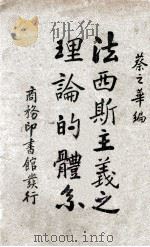 蔡之華編
法西斯主義之
理論的體系
商務印書館發行